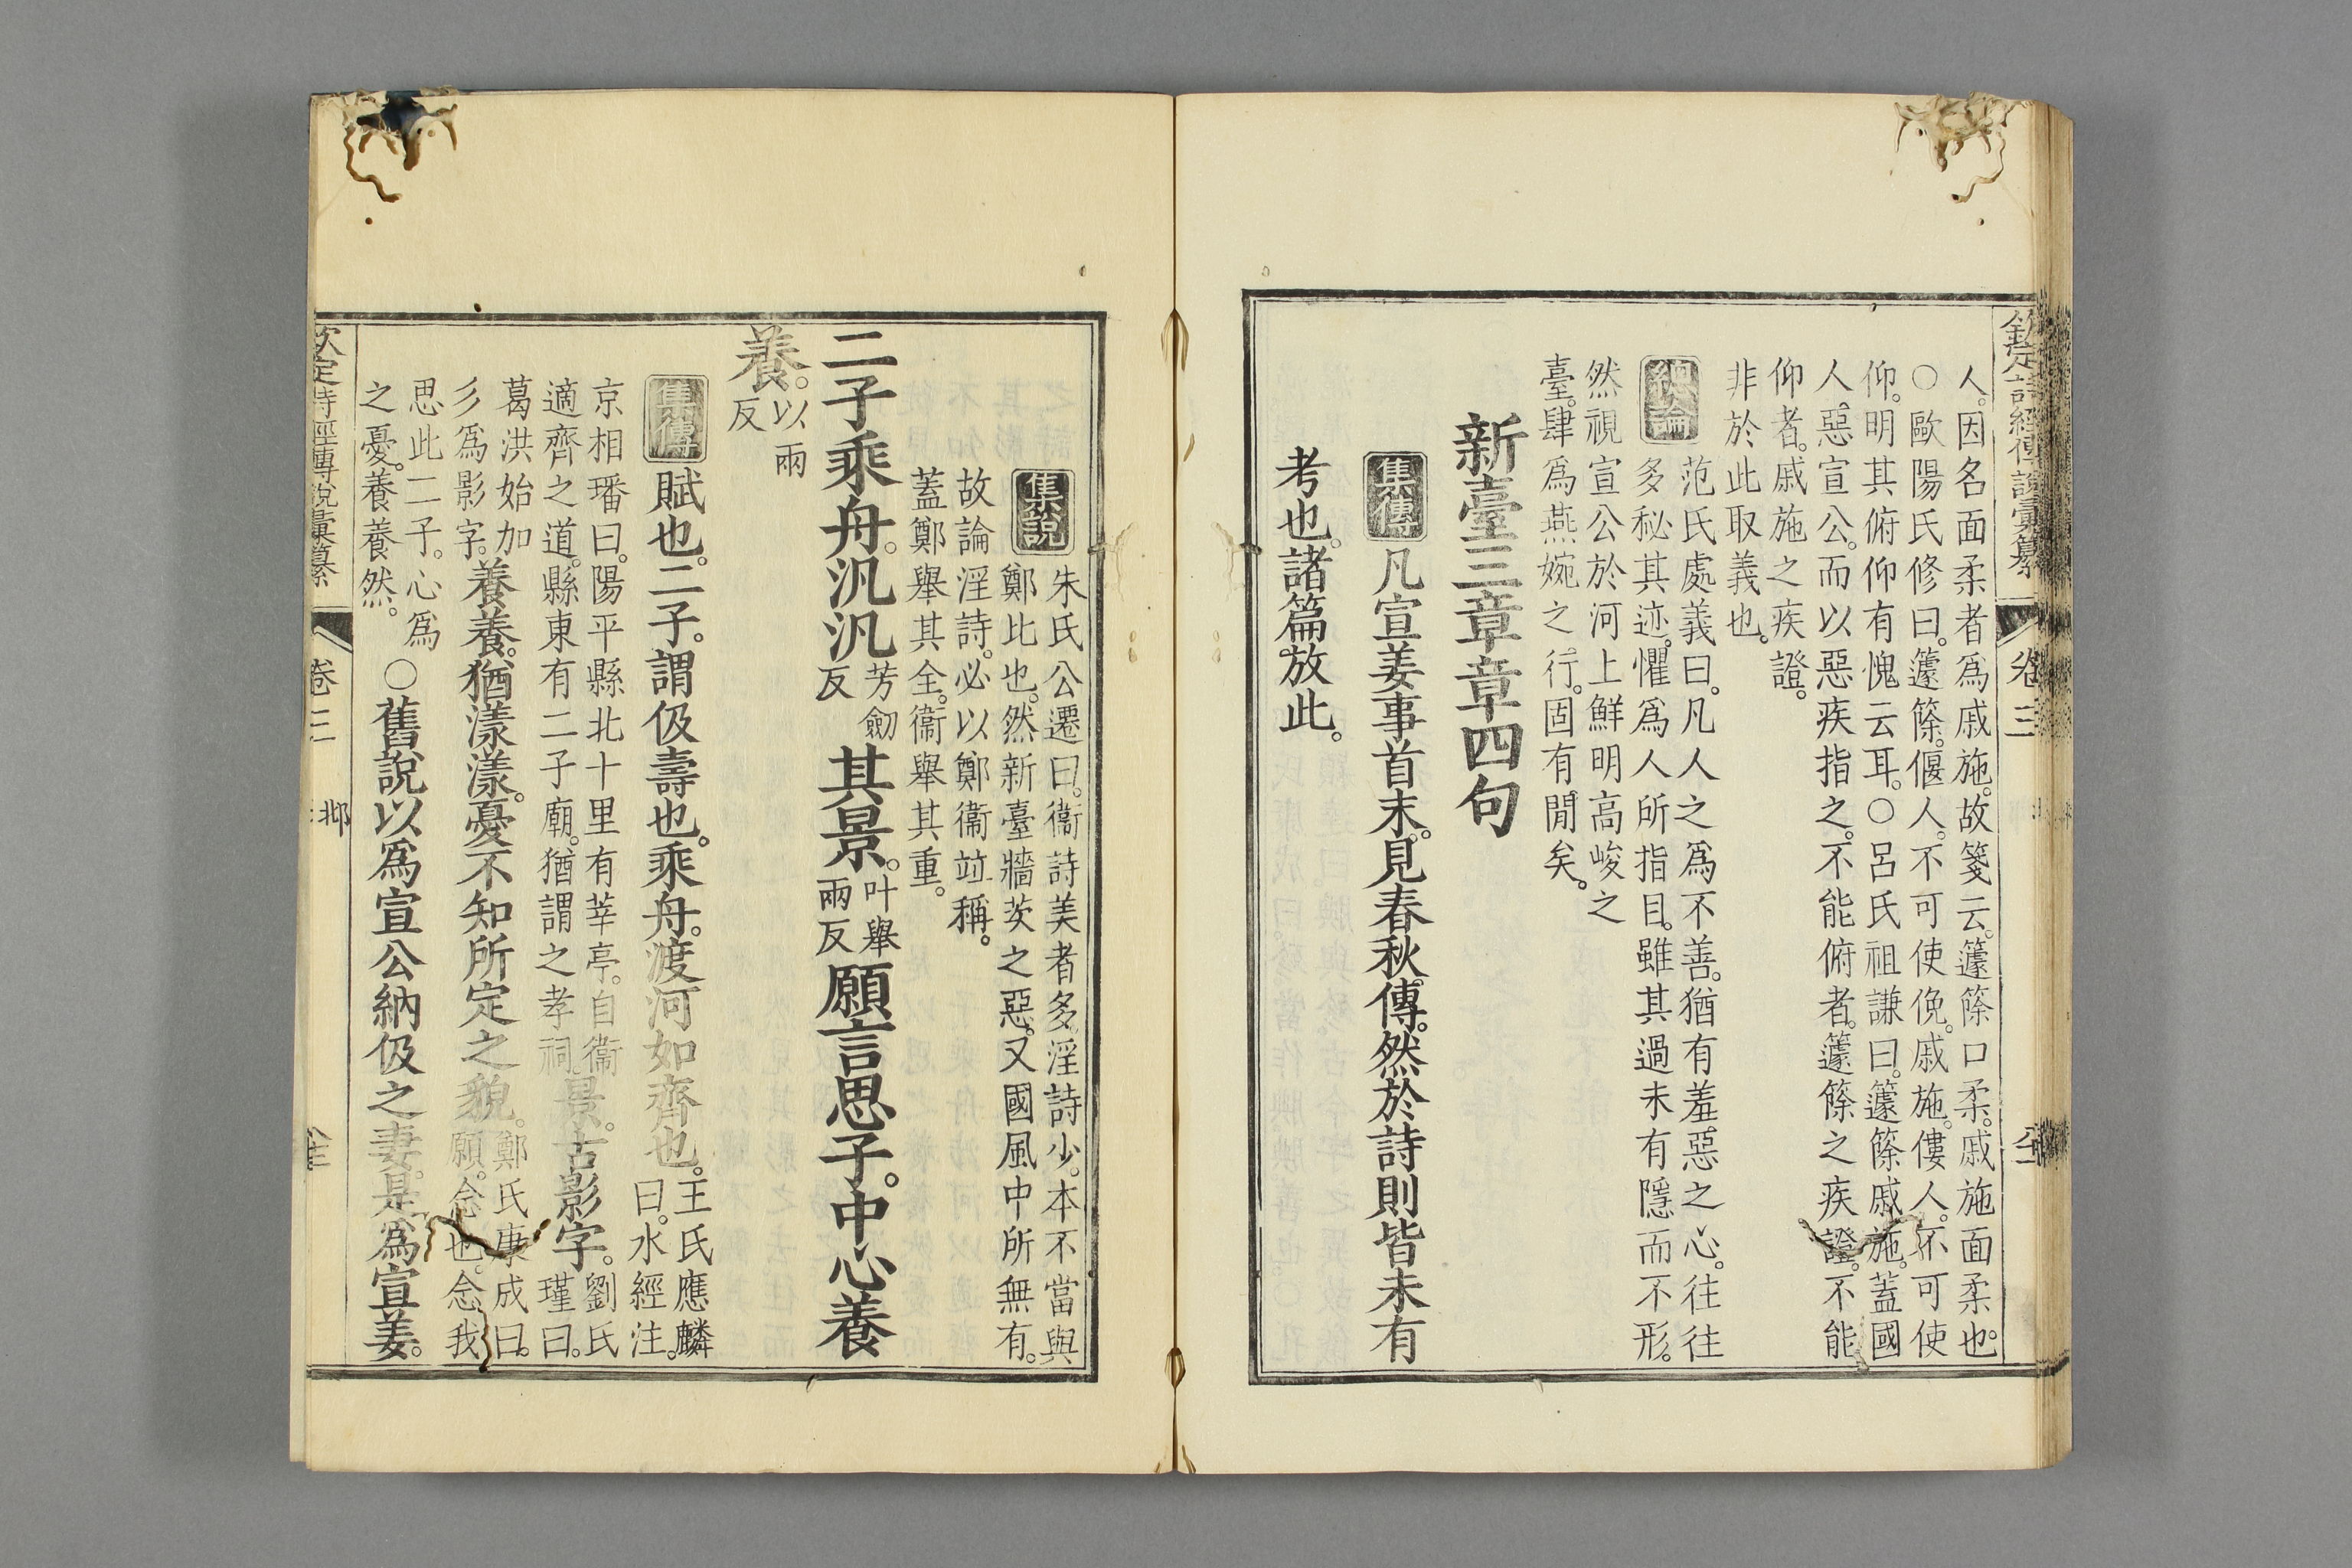 欽定詩經傳說彙纂 卷三
人。因名面柔者爲戚施。故箋云。籧篨口柔。戚施面柔也。
○歐陽氏修曰。籧篨。偃人。不可使俛。戚施。僂人。不可使
仰。明其俯仰有愧云耳。○呂氏祖謙曰。籧篨戚施。蓋國
人惡宣公。而以惡疾指之。不能俯者。籧篨之疾證。不能
仰者。戚施之疾證。
非於此取義也。
總論
范氏處義曰。凡人之爲不善。猶有羞惡之心。往往
多秘其迹。懼爲人所指目。雖其過未有隱而不形。
然視宣公於河上鮮明高峻之
臺。肆爲燕婉之行。固有閒矣。
新臺三章章四句
集傳 凡宣姜事首末。見春秋傳。然於詩則皆未有
考也。諸篇放此。
集說
朱氏公遷曰。衞詩美者多。淫詩少。本不當與
鄭比也。然新臺牆茨之惡。又國風中所無有。
故論淫詩。必以鄭衞竝稱。
蓋鄭舉其全。衞舉其重。
二子乘舟。汎汎 芳劒反 其景。叶舉兩反 願言思子。中心養
養。以兩反
集傳 賦也。二子。謂伋壽也。乘舟。渡河如齊也。王氏應麟曰。水經注。
京相璠曰。陽平縣北十里有莘亭。自衞
適齊之道。縣東有二子廟。猶謂之孝祠。
景。古影字。劉氏瑾曰。
葛洪始加
彡爲影字。
養養。猶漾漾。憂不知所定之貌。鄭氏康成曰。願。念也。念我
思此二子。心爲
之憂。養養然。
○舊說以爲宣公納伋之妻。是爲宣姜。
欽定詩經傳說彙纂 卷三 邶